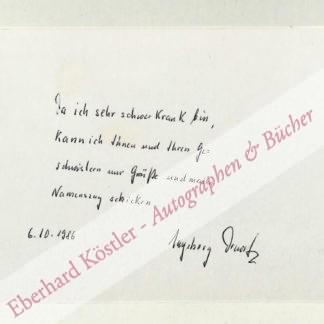 Da ich sehr schwer krank bin,
kann ich Ihnen und Ihren Ge-
schwistern nur Grüße und mein
Namenszug schicken
6.10.1986 Ingeborg Drewitz
Eberhard Köstler - Autographen & Bücher